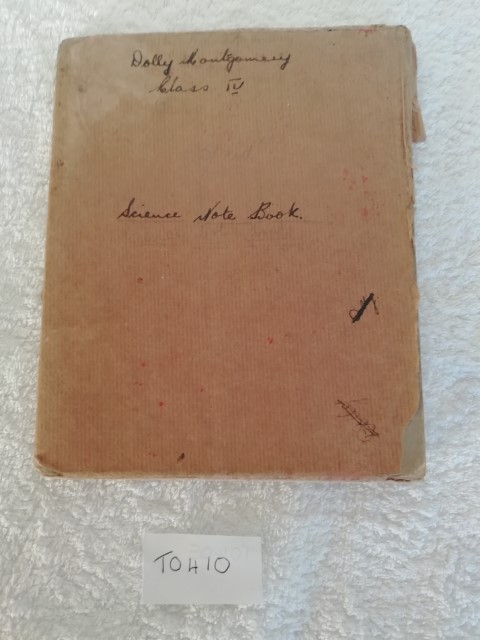 Dolly Montgomery
Class IV
Science Note Book.
TO410